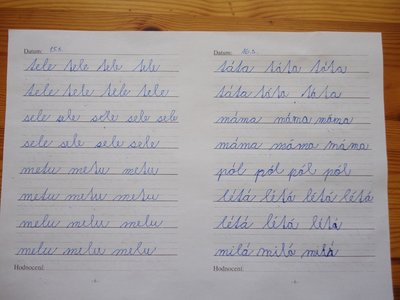 Datum: 15.1.
tele tele tele tele
tele tele tele tele
sele sele sele sele sele
sele sele sele sele
metu metu metu
metu metu metu
melu melu melu
melu melu melu
Hodnocení:
- 8 -
Datum: 16.1.
táta tóta tóta
táta tóta tota
máma máma máma
máma máma máma
pól pól pól pól
létá létá létá létá
létá létá létá
milá milá milá
Hodnocení: